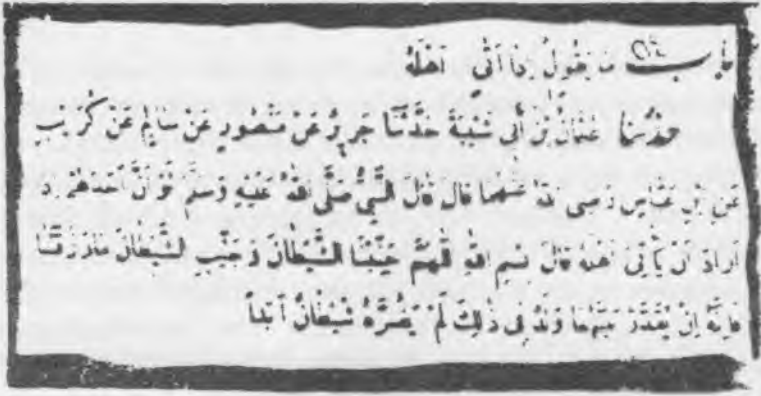 باب ما يقول إذا أتى أهله
حدثنا عثمان بن أبي شيبة حدثنا جرير عن منصور عن سالم عن كريب
عن ابن عباس رضى الله عنهما قال قال النبي صلى الله عليه وسلم لو أن أحدهم إذا
أراد أن يأتى أهله قال بسم الله اللهم جنبنا الشيطان وجنب الشيطان ما رزقتنا
فإنه إن يقدر بينهما ولد في ذلك لم يضره شيطان أبدا